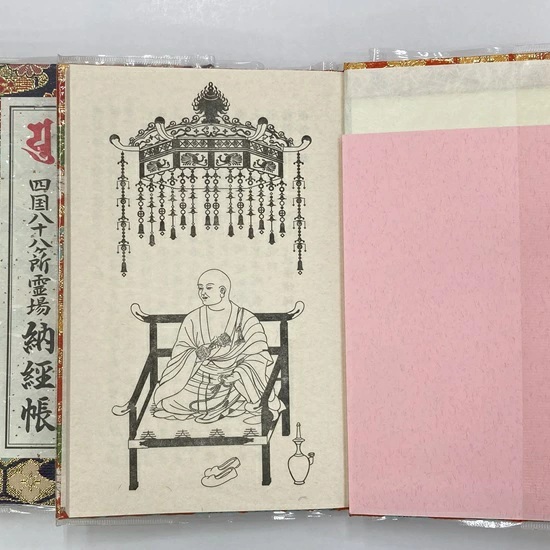 四国八十八ヶ所霊場
納経帳